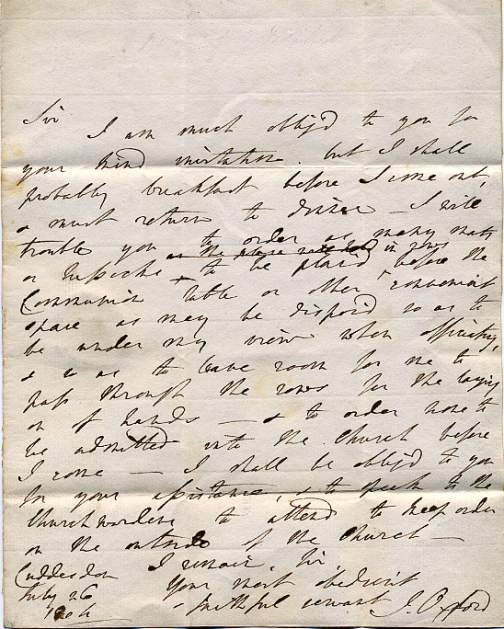 Sir
I am much oblig'd to you for
your kind invitation. but I shall
probably breakfast before I come out,
& must return to dinner — I will
trouble you to order as many mats
as the place will hold in rows
or Hassocks to be placed before the
Communion table or other convenient
space as may be dispos'd so as to
be under my view when officiating,
& so as to leave room for me to
pass through the rows for the laying
on of hands — & to order none to
be admitted into the Church before
I come — I shall be oblig'd to you
for your assistance, & to speak to the
Churchwardens to attend to keep order
on the outside of the Church —
I remain, Sir,
Cuddesdon
Your most obedient
July 26
& faithful servant J. Oxford